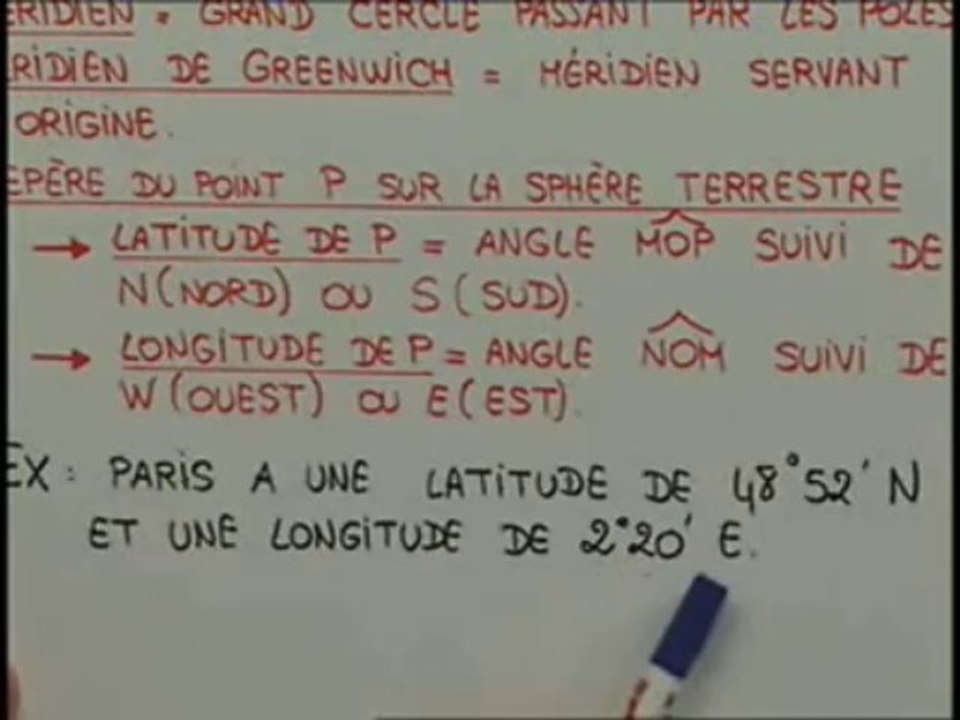 ÉRIDIEN = GRAND CERCLE PASSANT PAR LES PÔLES
ÉRIDIEN DE GREENWICH = MÉRIDIEN SERVANT
ORIGINE.
EPÈRE DU POINT P SUR LA SPHÈRE TERRESTRE
→ LATITUDE DE P = ANGLE MOP SUIVI DE
N (NORD) OU S (SUD).
→ LONGITUDE DE P = ANGLE NOM SUIVI DE
W (OUEST) OU E (EST).
EX : PARIS A UNE LATITUDE DE 48°52' N
ET UNE LONGITUDE DE 2°20' E.